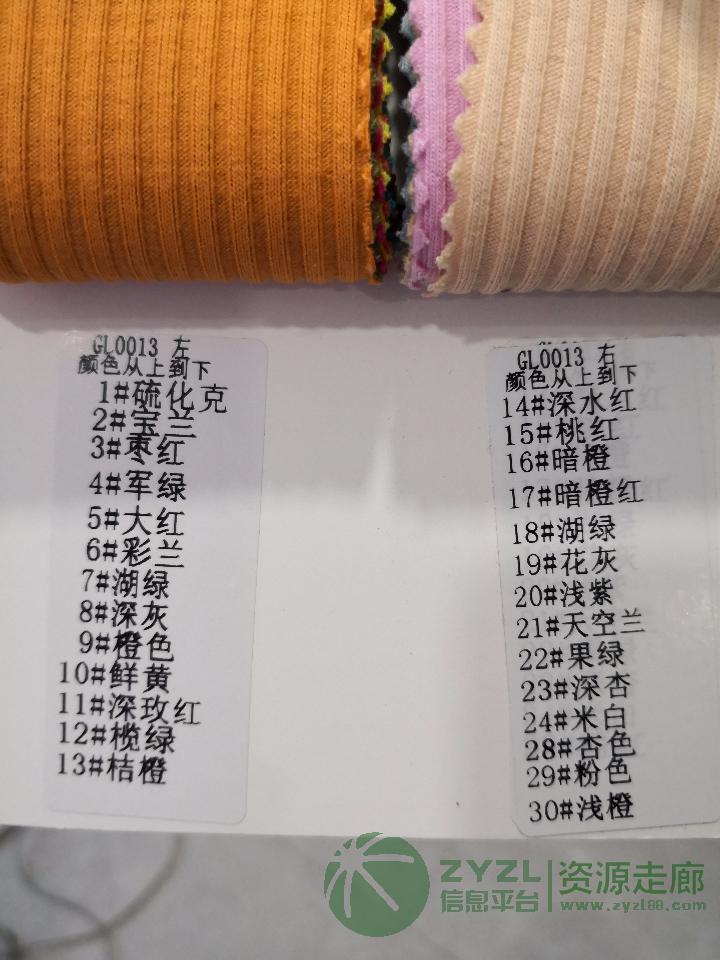 GL0013 左
颜色从上到下
1#硫化克
2#宝兰
3#枣红
4#军绿
5#大红
6#彩兰
7#湖绿
8#深灰
9#橙色
10#鲜黄
11#深玫红
12#榄绿
13#桔橙
GL0013 右
颜色从上到下
14#深水红
15#桃红
16#暗橙
17#暗橙红
18#湖绿
19#花灰
20#浅紫
21#天空兰
22#果绿
23#深杏
24#米白
28#杏色
29#粉色
30#浅橙
ZYZL
信息平台
资源走廊
www.zyzl88.com